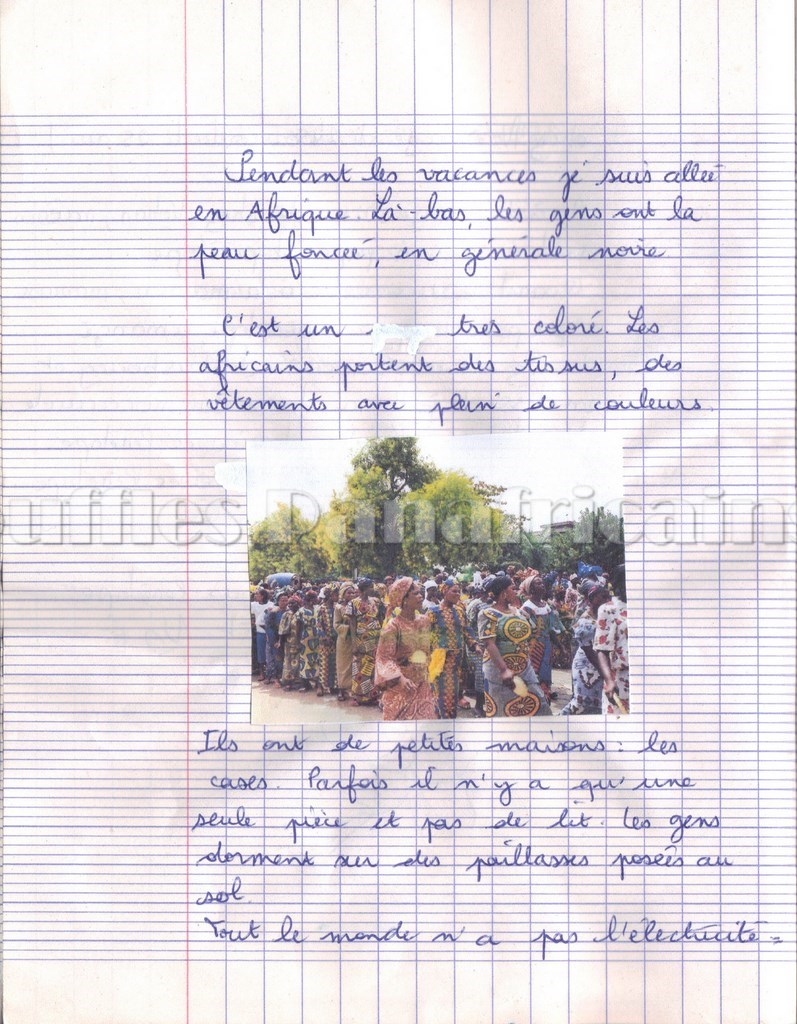 Pendant les vacances je suis alleé
en Afrique. Là-bas, les gens ont la
peau fonceé, en générale noire
C'est un tres coloré. Les
africains portent des tissus, des
vêtements avec plein de couleurs.
ouffles Panafricains
Ils ont de petites maisons : les
cases. Parfois il n'y a qu'une
seule pièce et pas de lit. Les gens
dorment sur des paillasses poseés au
sol.
Tout le monde n'a pas l'électricité =